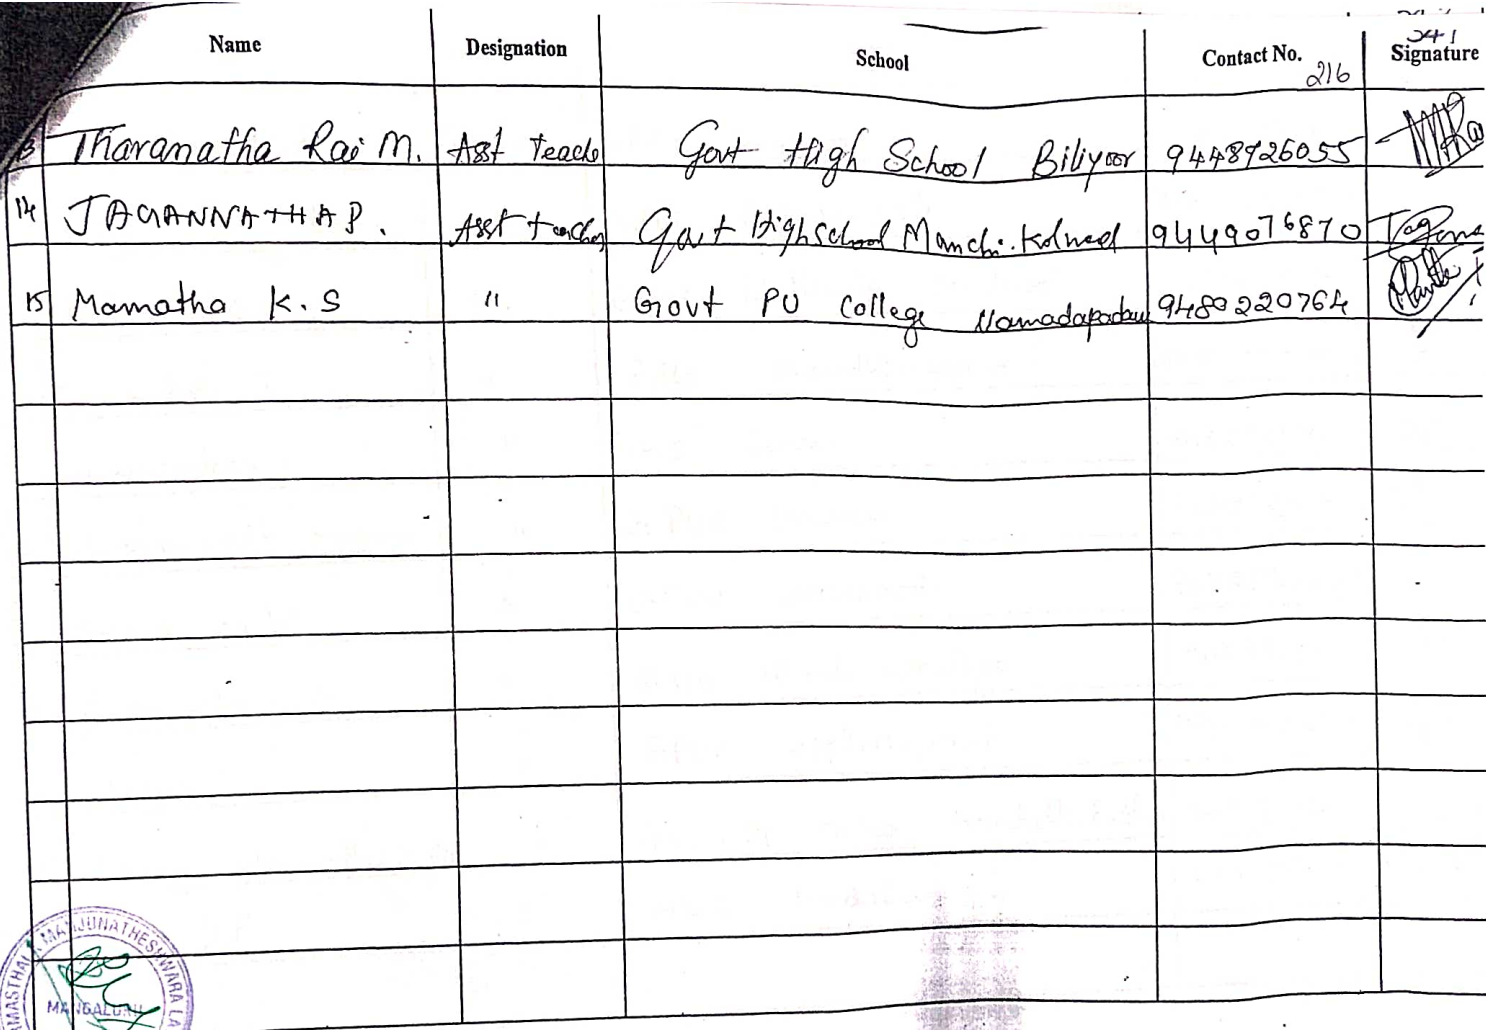 241
Name Designation School Contact No. Signature
216
Tharanatha Rai M. Asst Teache Govt High School Biliyoor 9448726055
14 JAGANNATHA P. Asst teacher Govt Highschool Manchi. Kolnad 9449076870
15 Mamatha K. S " Govt PU College Vamadapadau 9480220764
MANJUNATHESHWARA LA
MANGALURU